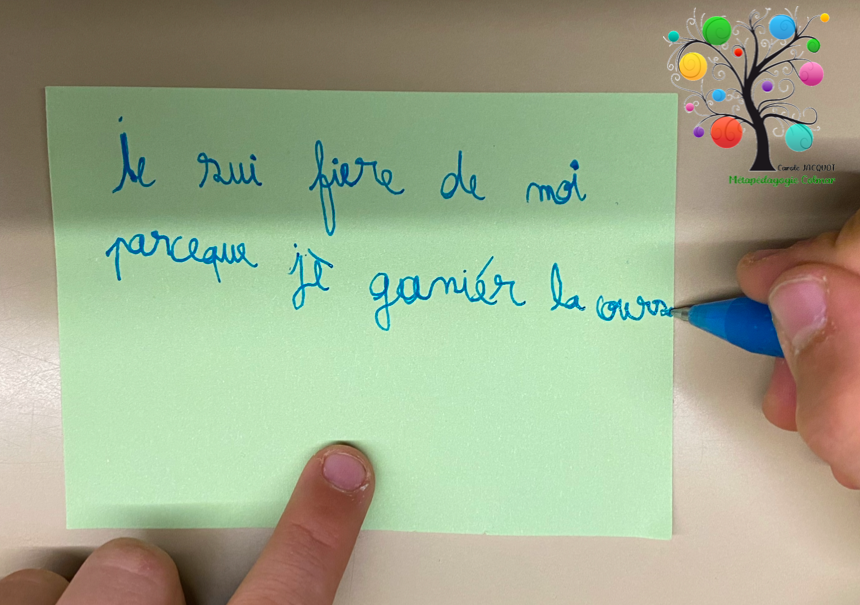 Carole JACQUOT
Métapédagogie Colmar
Je sui fiere de moi
parceque jè ganiér la cours